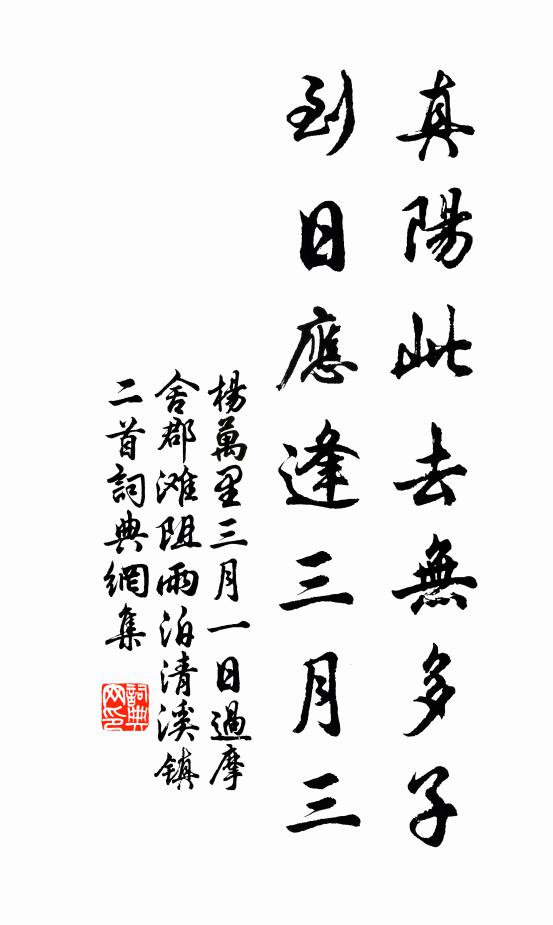 真陽此去無多子
到日應逢三月三
楊萬里三月一日過摩
舍郡滩阻雨泊清溪鎮
二首詞典網集
詞典
网印